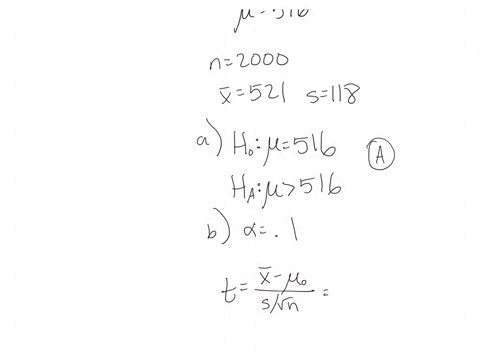 n=2000
x̄=521 s=118
a) H₀:μ=516
(A)
H_A:μ>516
b) α=.1
t= (x̄-μ₀)/(s/√n) =